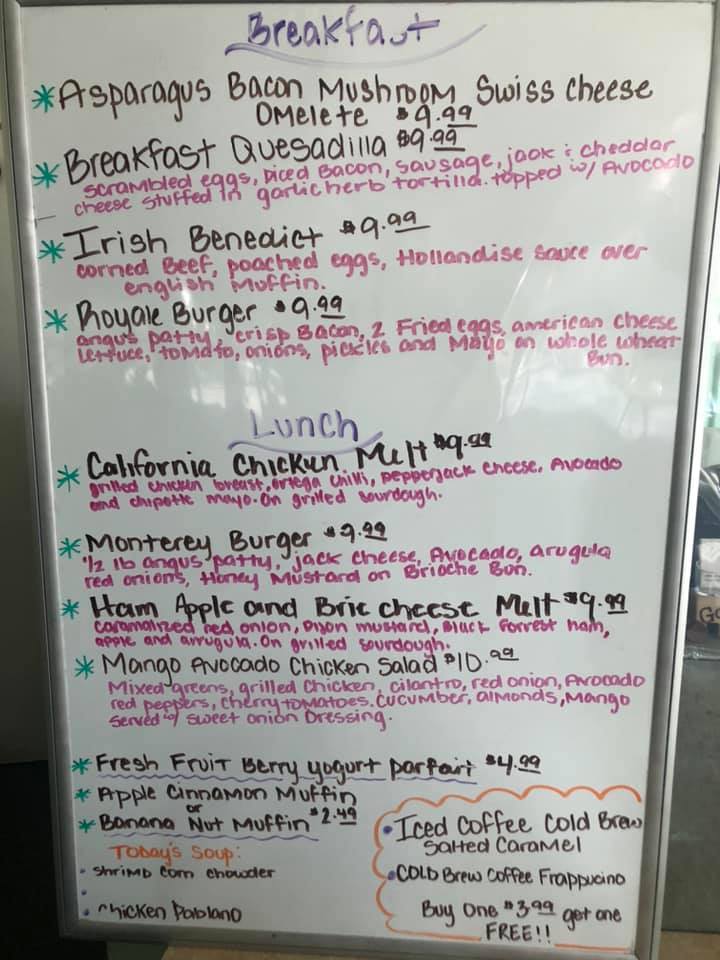 Breakfast
* Asparagus Bacon Mushroom Swiss Cheese
Omelete $9.99
* Breakfast Quesadilla $9.99
scrambled eggs, Diced Bacon, sausage, jack & cheddar
cheese stuffed in garlic herb tortilla. topped w/ Avocado
* Irish Benedict $9.99
corned Beef, poached eggs, Hollandise sauce over
english Muffin.
* Royale Burger $9.99
angus patty, crisp Bacon, 2 Fried eggs, american cheese
Lettuce, tomato, onions, pickles and Mayo on whole wheat
Bun.
Lunch
* California Chicken Melt $9.99
grilled chicken breast, ortega chilli, pepperjack cheese, Avocado
and chipotle mayo. On grilled sourdough.
* Monterey Burger $9.99
1/2 lb angus patty, jack cheese, Avocado, arugula
red onions, Honey Mustard on Brioche Bun.
* Ham Apple and Brie cheese Melt $9.99
caramalized red onion, Dijon mustard, Black Forrest ham,
apple and arrugula. On grilled sourdough.
* Mango Avocado Chicken Salad $10.99
Mixed greens, grilled Chicken, cilantro, red onion, Avocado
red peppers, cherry tomatoes. cucumber, almonds, Mango
served w/ sweet onion Dressing.
* Fresh Fruit Berry yogurt parfait $4.99
* Apple Cinnamon Muffin
or
* Banana Nut Muffin $2.49
Today's Soup:
• Shrimp corn chowder
•
• Chicken Pablano
• Iced Coffee Cold Brew
Salted Caramel
• COLD Brew Coffee Frappucino
Buy One $3.99 get one
FREE!!